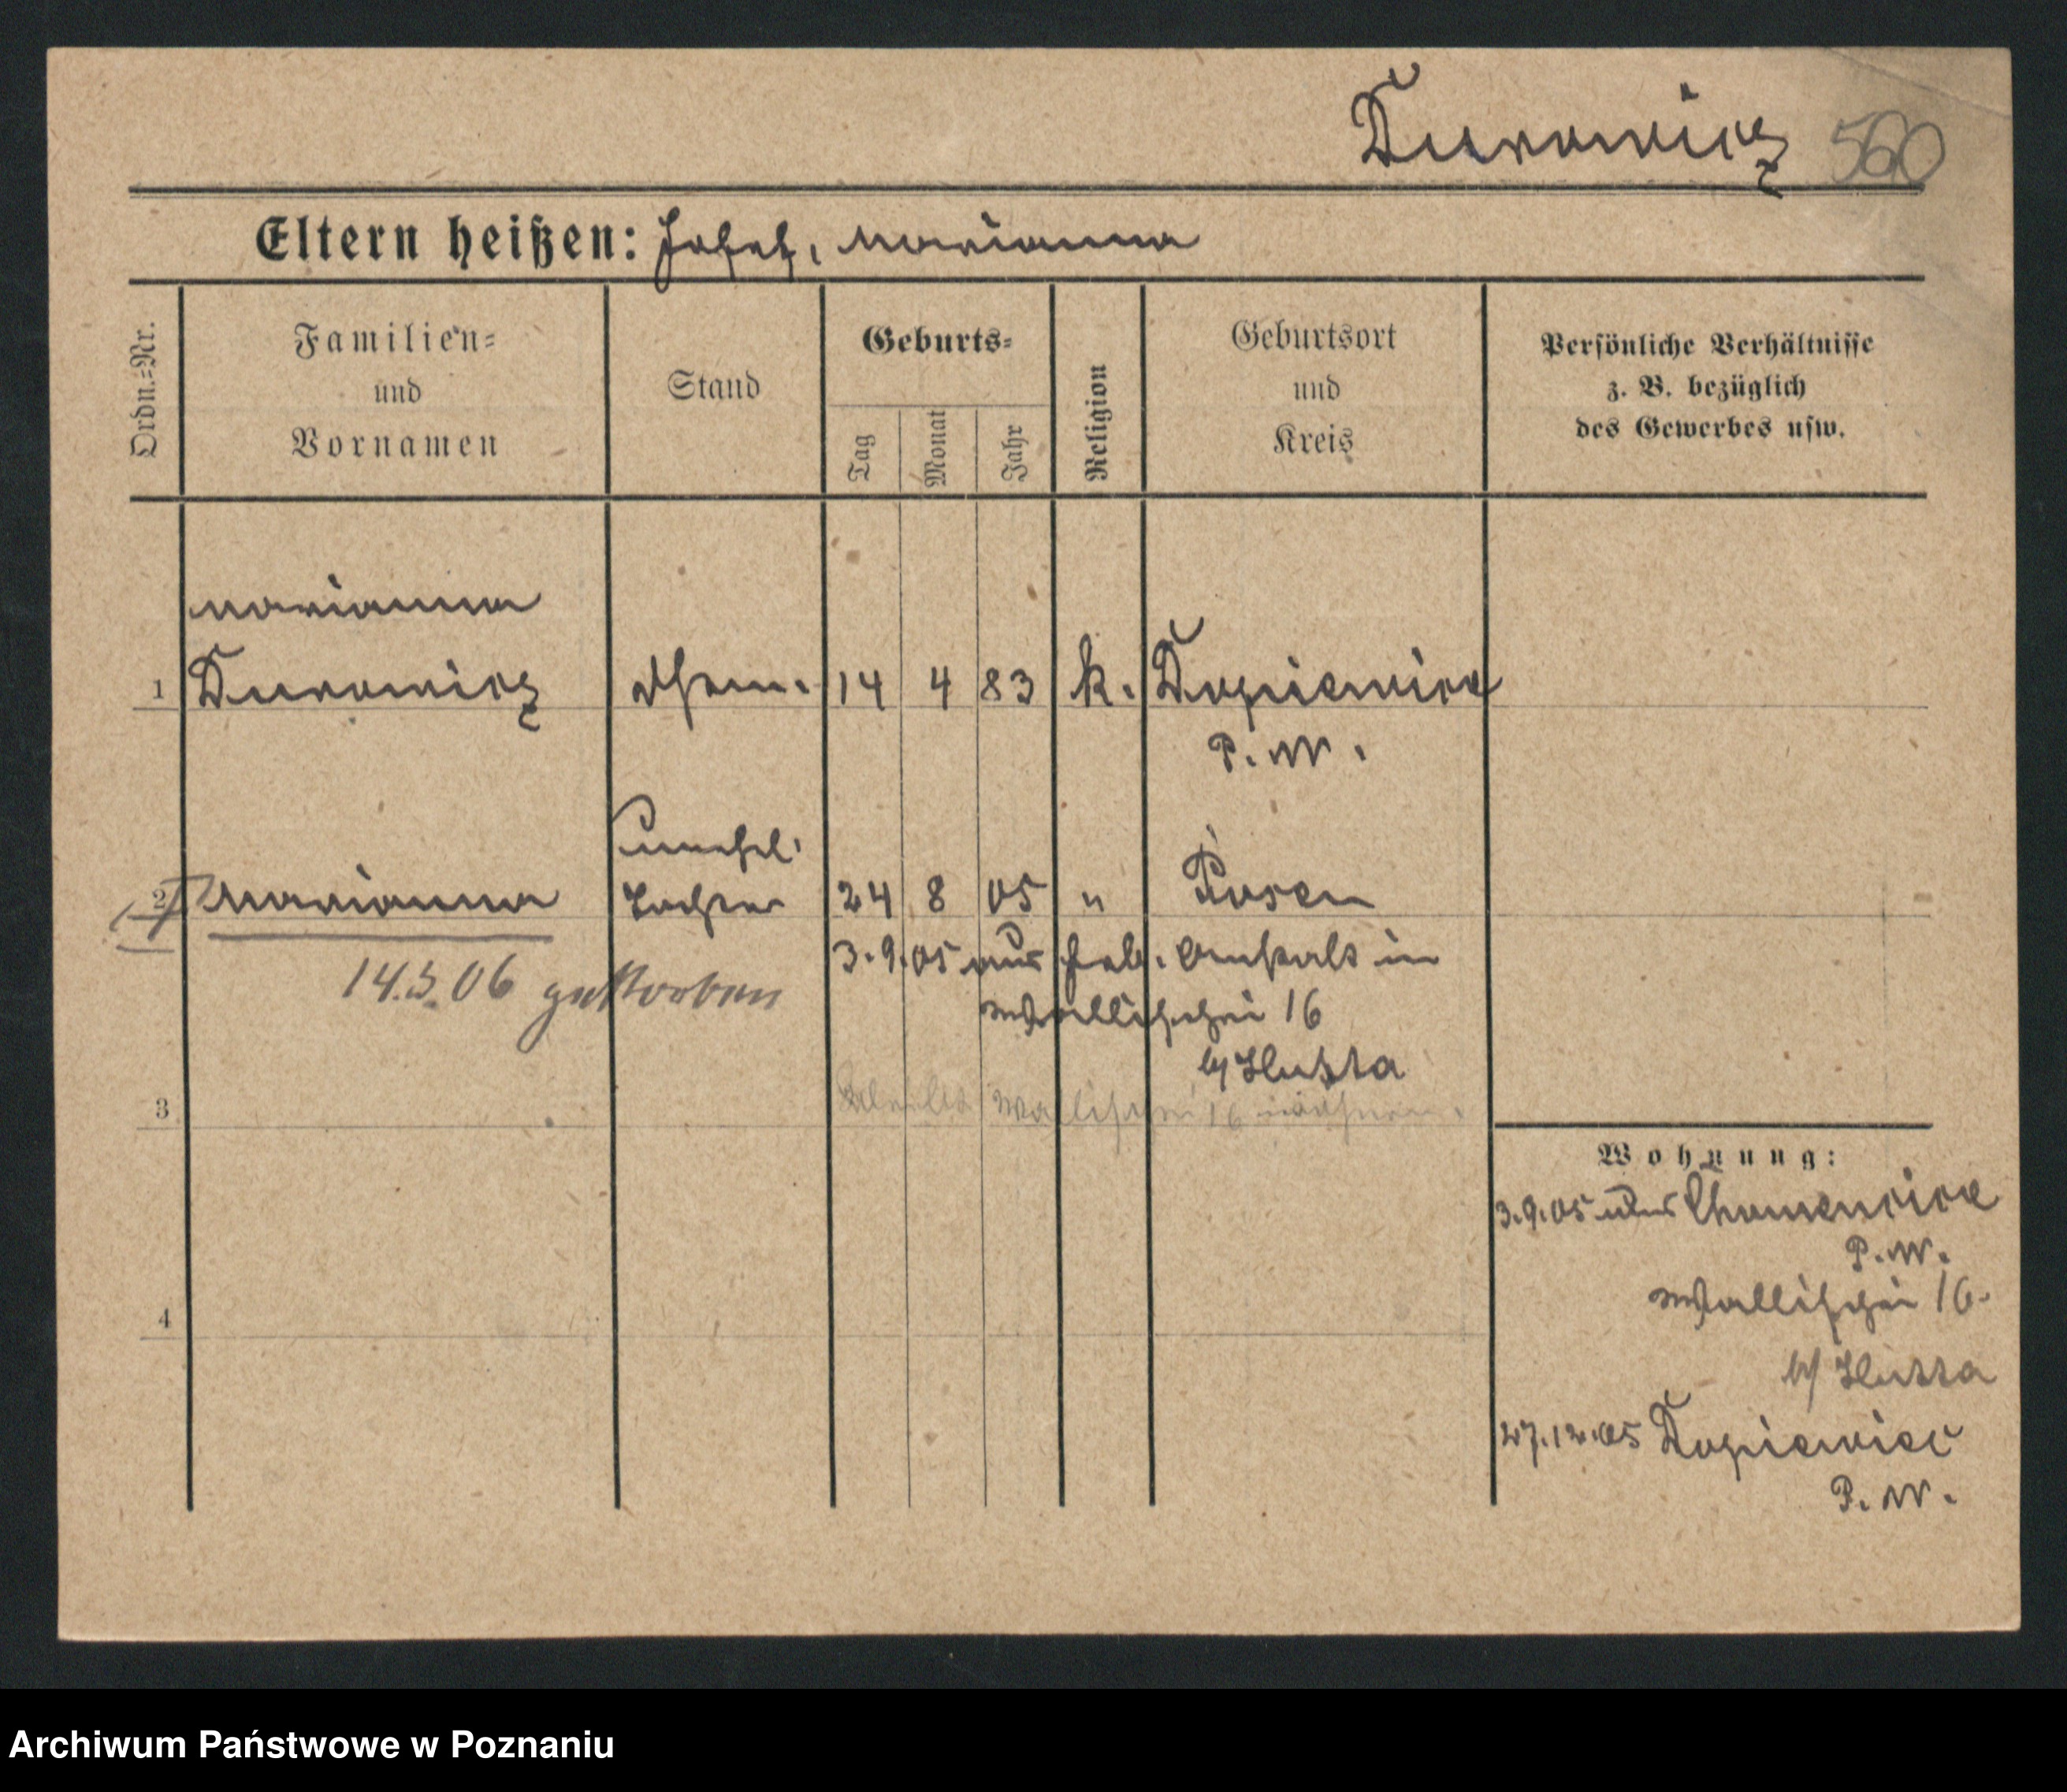 Durowicz 560
Eltern heißen: Josef, Marianna
Ordn.=Nr.
Familien=
und
Vornamen
Stand
Geburts=
Tag
Monat
Jahr
Religion
Geburtsort
und
Kreis
Persönliche Verhältnisse
z. B. bezüglich
des Gewerbes usw.
Marianna
1 Durowicz 14 4 83 k. Dopiewiec
P. W.
unehel.
2 Marianna Tochter 24 8 05 " Posen
3.9.05 aus Heb. Anstalt in
14.3.06 gestorben
Wallischei 16
b/ Hutta
3 Wallischei 16
Wohnung:
3.9.05 aus Chomencice
P. W.
Wallischei 16.
4
b/ Hutta
27.12.05 Dopiewiec
P. W.
Archiwum Państwowe w Poznaniu